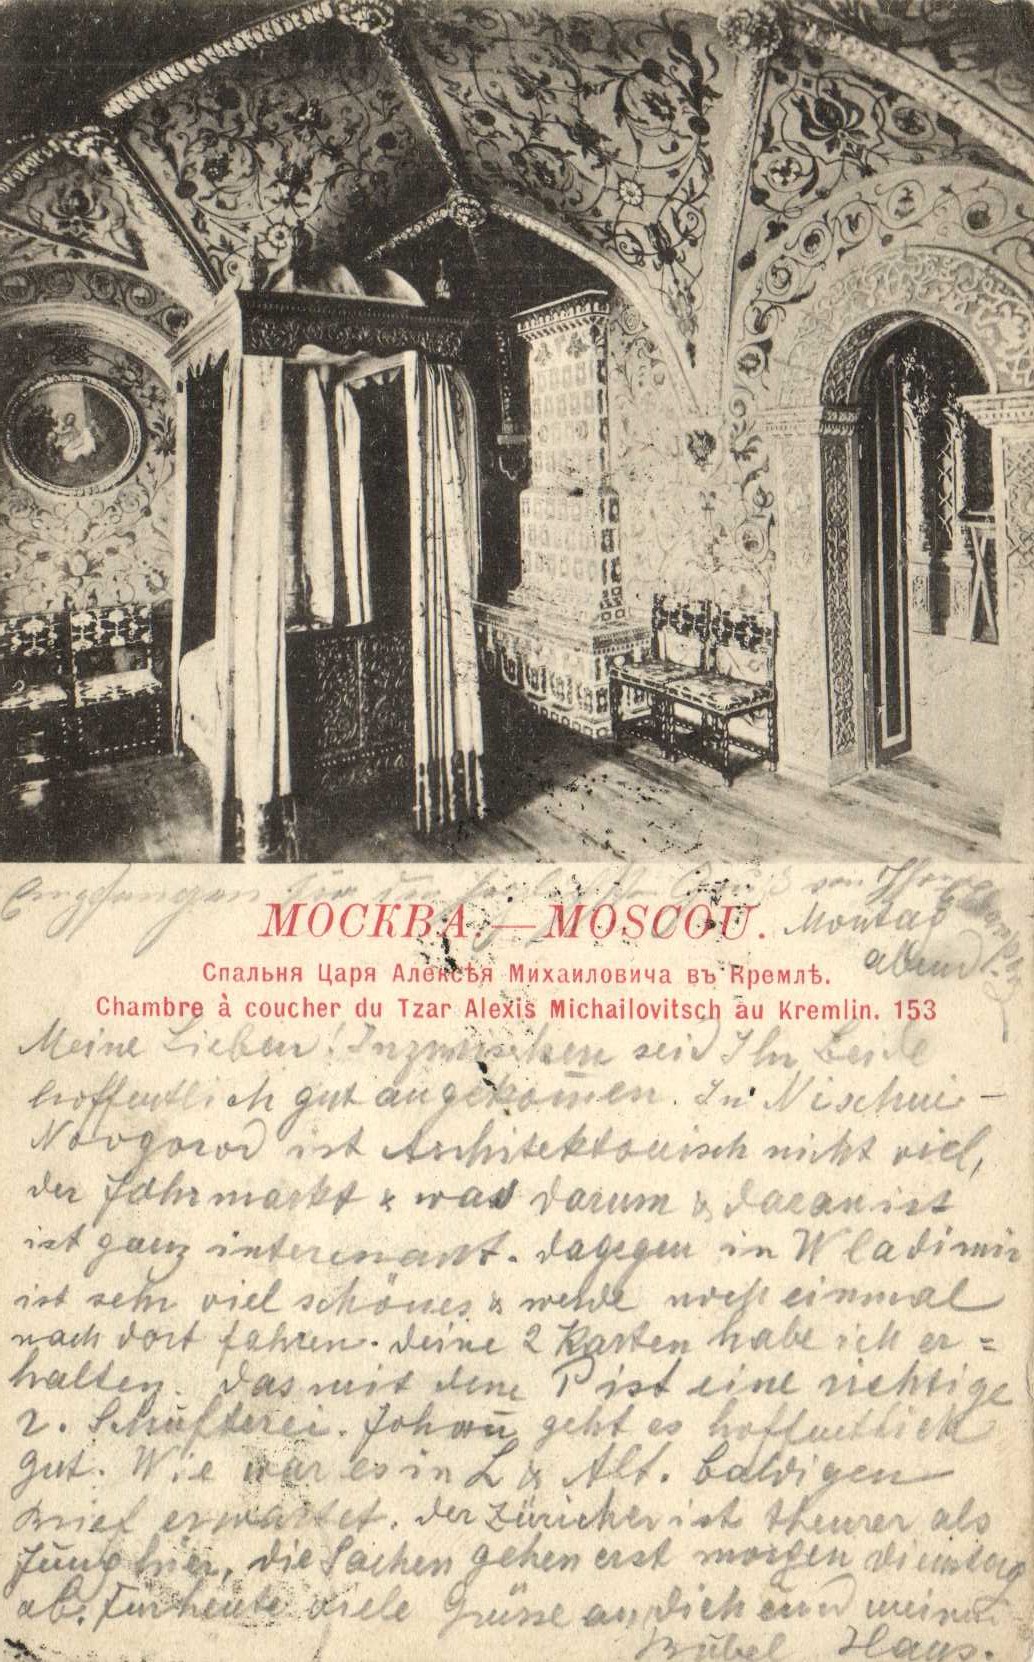 Empfangen für den
Montag
abend.
МОСКВА.—MOSCOU.
Спальня Царя Алексѣя Михаиловича въ Кремлѣ.
Chambre à coucher du Tzar Alexis Michailovitsch au Kremlin. 153
Meine Lieben! Inzwischen seid Ihr beide
hoffentlich gut angekom̅en. In Nischni-
Novgorod ist Architektonisch nicht viel,
der Jahrmarkt & was darum & daran ist
ist ganz interessant. dagegen in Wladimir
ist sehr viel schönes & werde noch einmal
nach dort fahren. deine 2 Karten habe ich er=
halten. das mit dem P ist eine richtige
2. Schufterei. Johan̅ geht es hoffentlich
gut. Wie war es in L & Alt. baldigen
Brief erwartet. der Züricher ist theurer als
Jung hier, die Sachen gehen erst morgen dienstag
ab. Für heute viele Grüsse an dich und meinen
Bubel Hans.